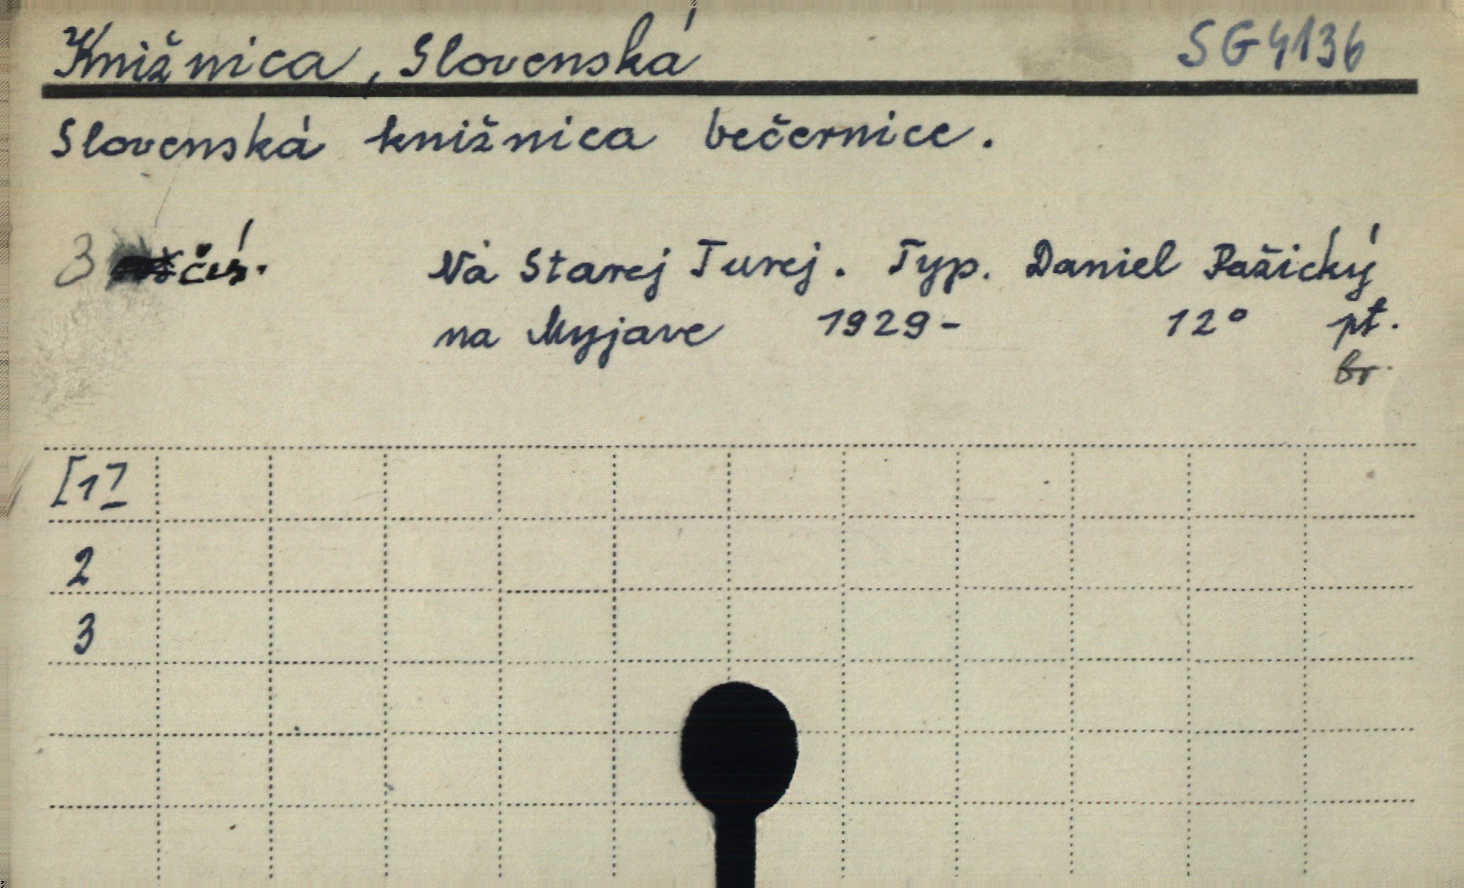 Knižnica, Slovenská SG4136
Slovenská knižnica večernice.
3 čís. Na Starej Turej. Typ. Daniel Pažický
na Myjave 1929- 12° pt.
br.
[1]
2
3